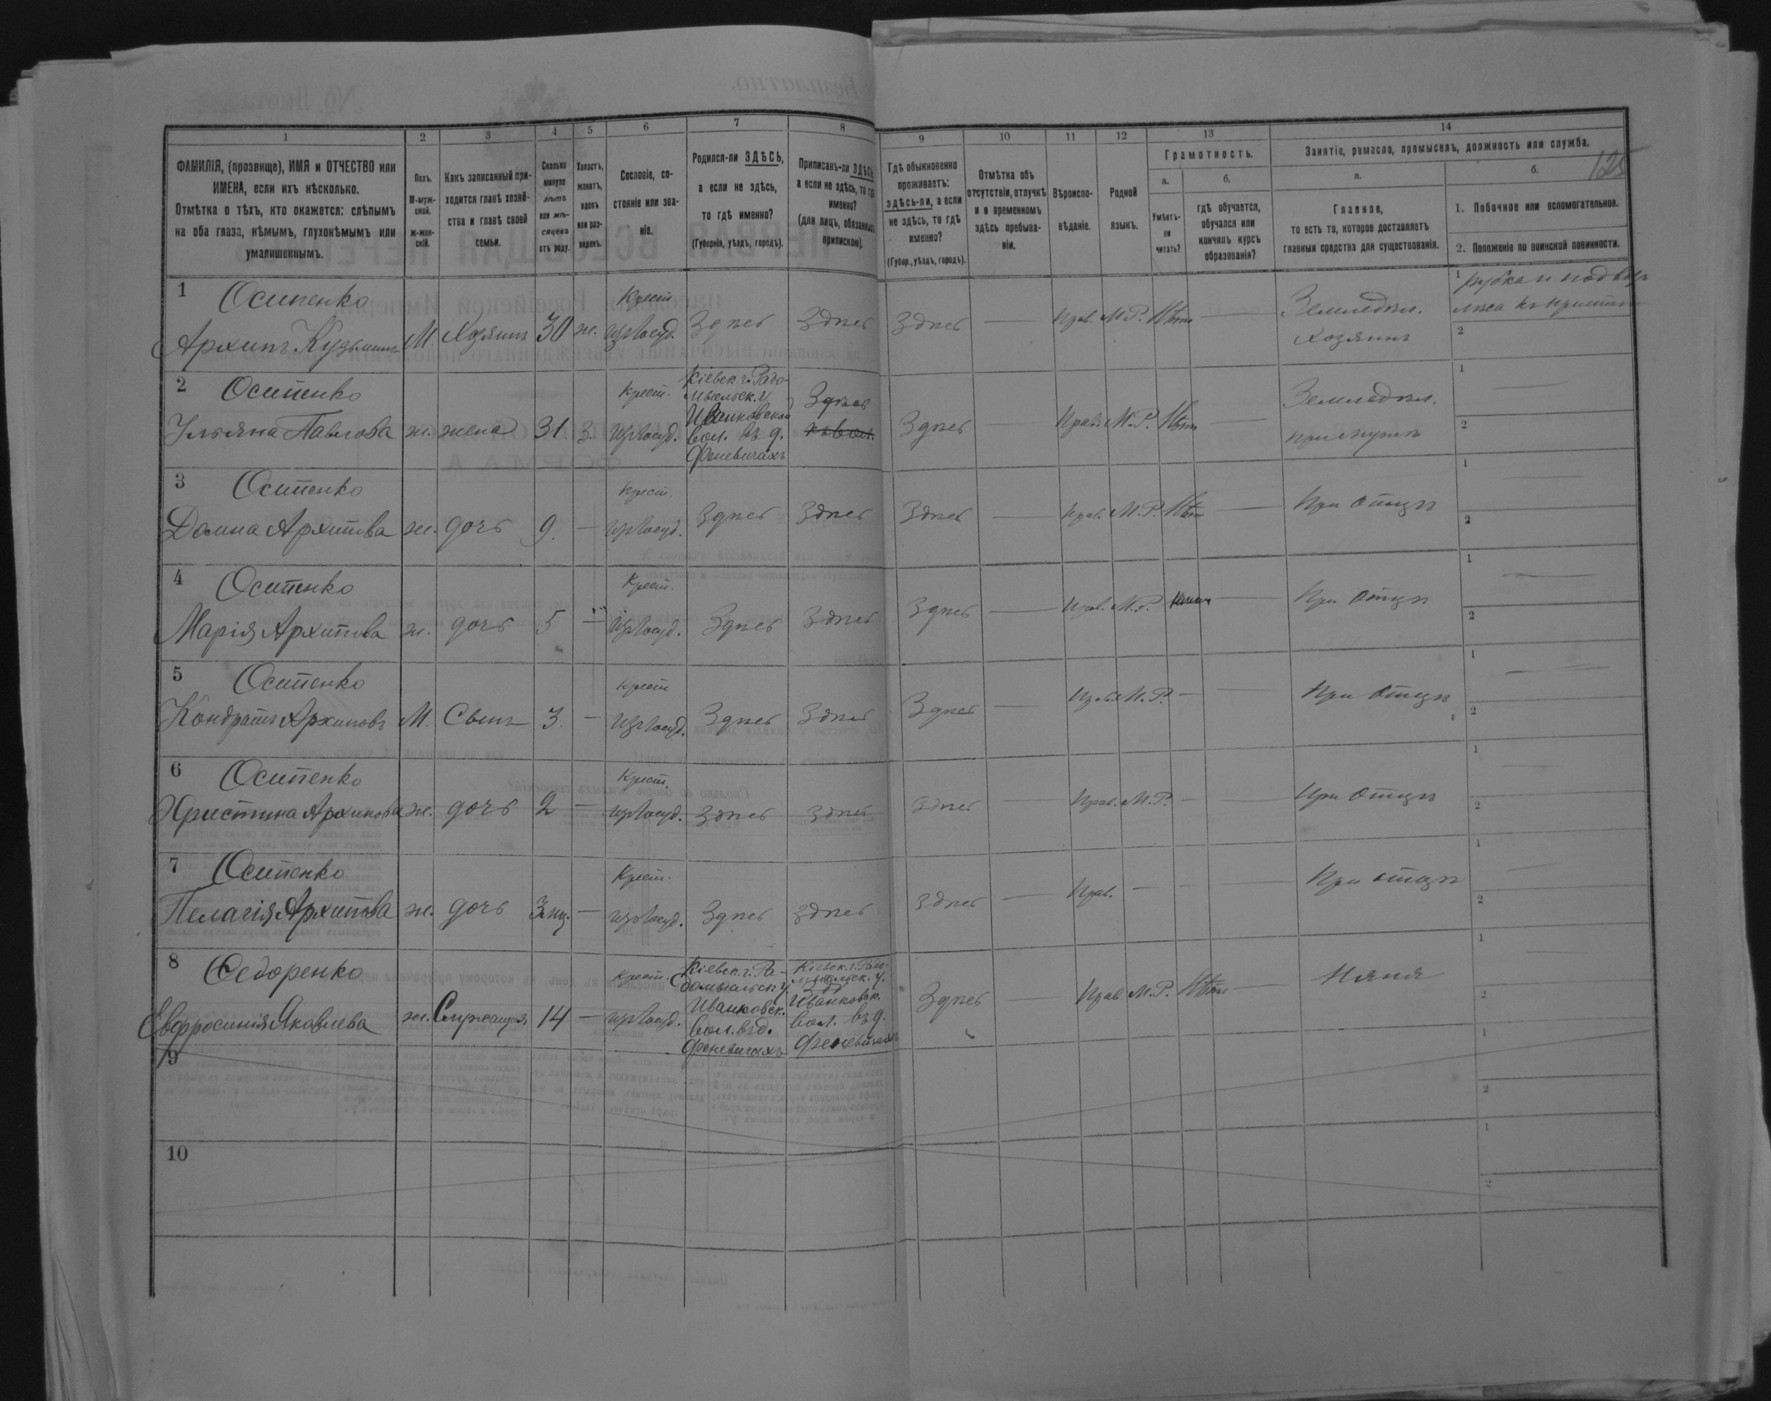 1 2 3 4 5 6 7 8 9 10 11 12 13 14
ФАМИЛІЯ, (прозвище), ИМЯ и ОТЧЕСТВО или
ИМЕНА, если ихъ нѣсколько.
Отмѣтка о тѣхъ, кто окажется: слѣпымъ
на оба глаза, нѣмымъ, глухонѣмымъ или
умалишеннымъ.
Полъ.
М-муж-
ской.
ж-жен-
скій.
Какъ записанный при-
ходится главѣ хозяй-
ства и главѣ своей
семьи.
Сколько
минуло
лѣтъ
или мѣ-
сяцевъ
отъ роду.
Холостъ,
женатъ,
вдовъ
или раз-
веденъ.
Сословіе, со-
стояніе или зва-
ніе.
Родился-ли ЗДѢСЬ,
а если не здѣсь,
то гдѣ именно?
(Губернія, уѣздъ, городъ).
Приписанъ-ли ЗДѢСЬ,
а если не здѣсь, то гдѣ
именно?
(для лицъ, обязанныхъ
припискою).
Гдѣ обыкновенно
проживаетъ:
здѣсь-ли, а если
не здѣсь, то гдѣ
именно?
(Губер., уѣздъ, городъ).
Отмѣтка объ
отсутствіи, отлучкѣ
и о временномъ
здѣсь пребыва-
ніи.
Вѣроиспо-
вѣданіе.
Родной
языкъ.
Грамотность.
а.
Умѣетъ-
ли
читать?
б.
гдѣ обучается,
обучался или
кончилъ курсъ
образованія?
Занятіе, ремесло, промыселъ, должность или служба.
125
а.
Главное,
то есть то, которое доставляетъ
главныя средства для существованія.
б.
1. Побочное или вспомогательное.
2. Положеніе по воинской повинности.
1 Осипенко
Архипъ Кузьминъ М. Хозяинъ 30 ж. Крест. изъ госуд. Здѣсь Здѣсь Здѣсь — Прав. М.Р. Нѣтъ — Земледѣл.
хозяинъ
1 рубка и подвозъ
лѣса къ пристани
2
2 Осипенко
Ульяна Павлова ж. жена 31 з. Крест. изъ госуд.
Кіевск. г. Радо-
мысльск. у.
Иванковской
вол. въ д.
Феневичахъ
Здѣсь
Здѣсь — Прав. М.Р. Нѣтъ — Земледѣл.
при мужѣ
1 —
2
3 Осипенко
Домна Архипова ж. дочь 9. — Крест. изъ госуд. Здѣсь Здѣсь Здѣсь — Прав. М.Р. Нѣтъ — При отцѣ
1 —
2
4 Осипенко
Марія Архипова ж. дочь 5 — Крест. изъ госуд. Здѣсь Здѣсь Здѣсь — Прав. М.Р. — При отцѣ
1 —
2
5 Осипенко
Кондратъ Архиповъ М. Сынъ 3. — Крест. изъ госуд. Здѣсь Здѣсь Здѣсь — Прав. М.Р. — — При отцѣ
1 —
2
6 Осипенко
Христина Архипова ж. дочь 2 — Крест. изъ госуд. Здѣсь Здѣсь Здѣсь — Прав. М.Р. — — При отцѣ
1
2
7 Осипенко
Пелагія Архипова ж. дочь 3 мц. — Крест. изъ госуд. Здѣсь Здѣсь Здѣсь — Прав. — — — При отцѣ
1 —
2
8 Федоренко
Евфросинія Яковлева ж. Служащая 14 — Крест. изъ госуд.
Кіевск. г. Ра-
домысльск. у.
Иванковск.
вол. въ д.
Феневичахъ
Кіевск. г. Радо-
мысльск. у.
Иванковск.
вол. въ д.
Феневичахъ
Здѣсь — Прав. М.Р. Нѣтъ — Няня
1 —
2
9
1
2
10
1
2